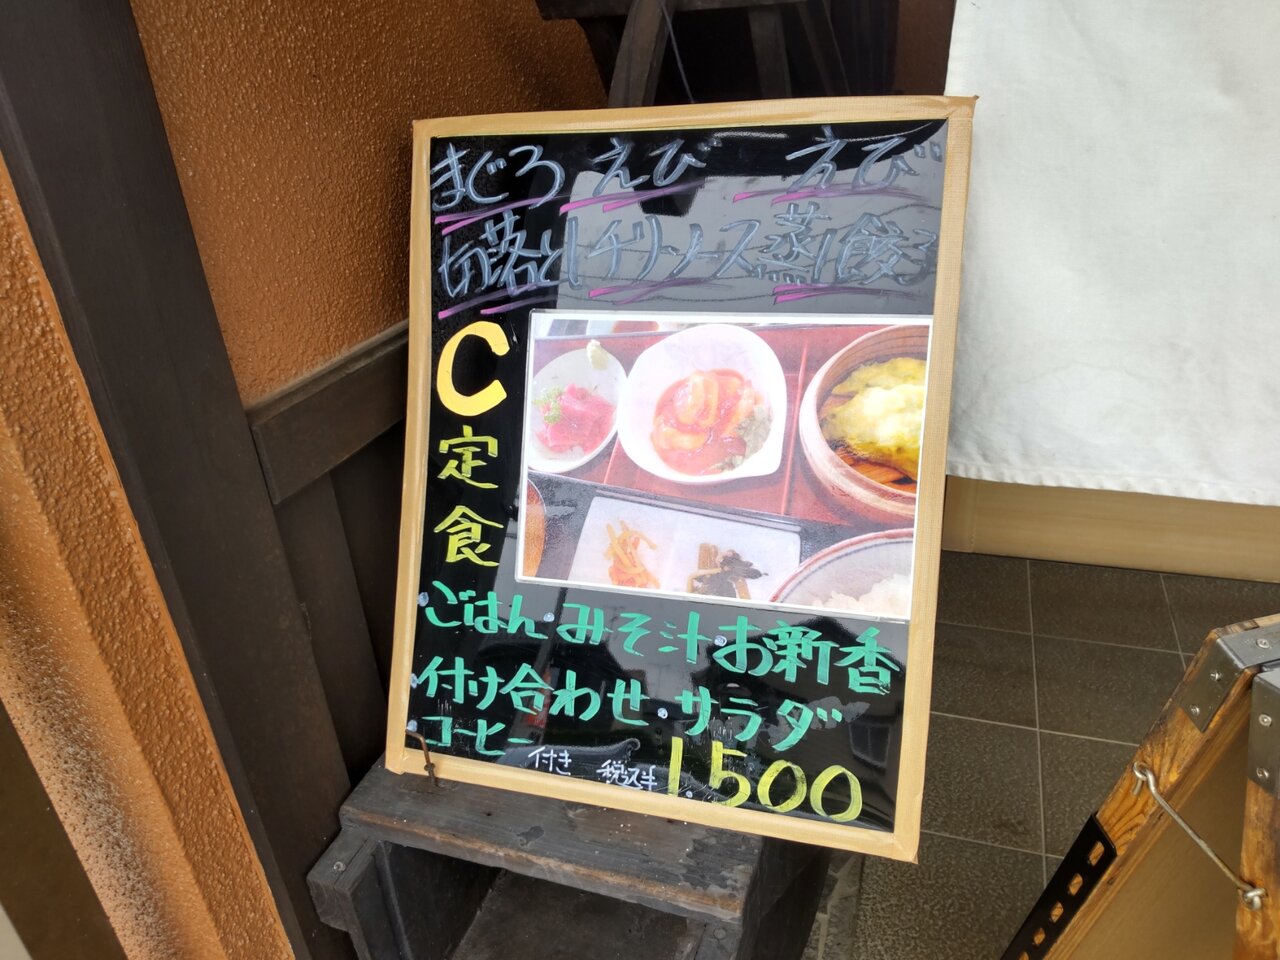 まぐろ えび えび
切落とし チリソース 蒸し餃子
C
定
食
・ごはん・みそ汁・お新香
・付け合わせ・サラダ
・コーヒー 付き 税込 1.500